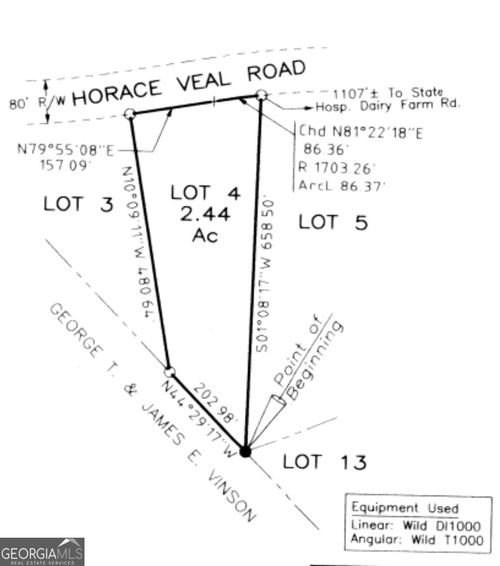 HORACE VEAL ROAD
80' R/W
1107'± To State
Hosp. Dairy Farm Rd.
N79°55'08"E
157.09'
Chd N81°22'18"E
86.36'
R 1703.26'
ArcL 86.37'
LOT 3
LOT 4
2.44
Ac
LOT 5
N10°09'11"W 480.64'
S01°08'17"W 658.50'
GEORGE T. & JAMES E. VINSON
202.98'
N44°29'17"W
Point of
Beginning
LOT 13
Equipment Used
Linear: Wild DI1000
Angular: Wild T1000
GEORGIAMLS
REAL ESTATE SERVICES